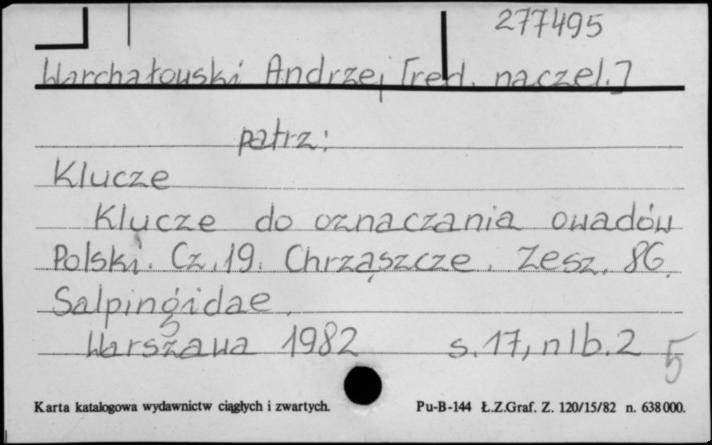 277495
Warchałowski Andrzej [red. naczel.]
patrz:
Klucze
Klucze do oznaczania owadów
Polski. Cz. 19. Chrząszcze. Zesz. 86.
Salpingidae.
Warszawa 1982 s. 17, nlb. 2
5
Karta katalogowa wydawnictw ciągłych i zwartych. Pu-B-144 Ł.Z.Graf. Z. 120/15/82 n. 638 000.